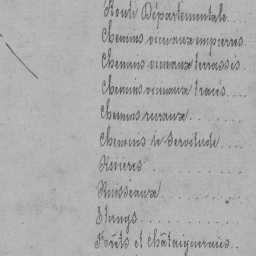 Route Départementale....
Chemins vicinaux empierrés
Chemins vicinaux terrassés..
Chemins vicinaux tracés....
Chemins ruraux.......
Chemins de Servitude....
Rivières............
Ruisseaux..........
Etangs...........
Forêts et Châtaigneraies..